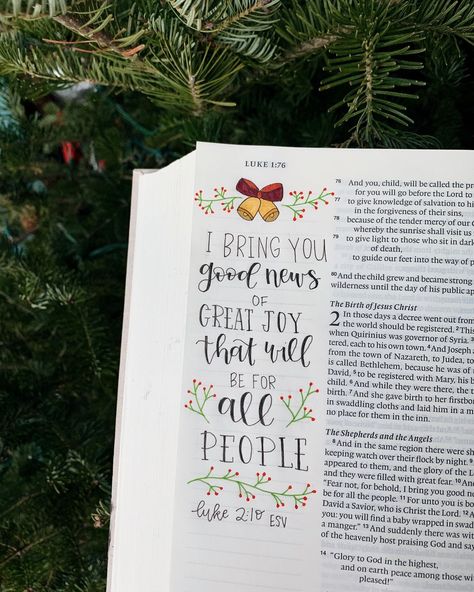 LUKE 1:76
I BRING YOU
good news
OF
GREAT JOY
that will
BE FOR
all
PEOPLE
luke 2:10 ESV
76 And you, child, will be called the
for you will go before the Lord to
77 to give knowledge of salvation to his
in the forgiveness of their sins,
78 because of the tender mercy of our G
whereby the sunrise shall visit us
79 to give light to those who sit in dark
of death,
to guide our feet into the way of p
80 And the child grew and became strong
wilderness until the day of his public ap
The Birth of Jesus Christ
2 In those days a decree went out from
the world should be registered. 2 This
when Quirinius was governor of Syria. 3
tered, each to his own town. 4 And Joseph
from the town of Nazareth, to Judea, to
is called Bethlehem, because he was of
David, 5 to be registered with Mary, his
child. 6 And while they were there, the
7 And she gave birth to her firstborn
in swaddling cloths and laid him in a m
no place for them in the inn.
The Shepherds and the Angels
8 And in the same region there were sh
keeping watch over their flock by night.
appeared to them, and the glory of the L
and they were filled with great fear. 10 And
"Fear not, for behold, I bring you good n
be for all the people. 11 For unto you is bo
David a Savior, who is Christ the Lord.
you: you will find a baby wrapped in swad
a manger." 13 And suddenly there was with
of the heavenly host praising God and say
14 "Glory to God in the highest,
and on earth peace among those wi
pleased!"